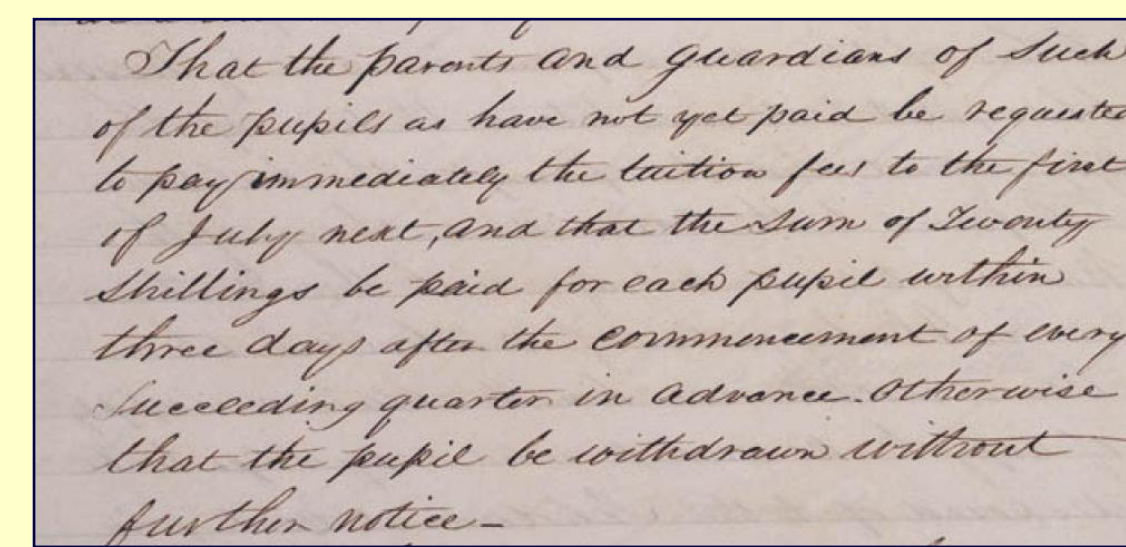 That the parents and guardians of Such
of the pupils as have not yet paid be requested
to pay immediately the tuition fees to the first
of July next, and that the Sum of Twenty
Shillings be paid for each pupil within
three days after the Commencement of every
Succeeding quarter in advance. Otherwise
that the pupil be withdrawn without
further notice -